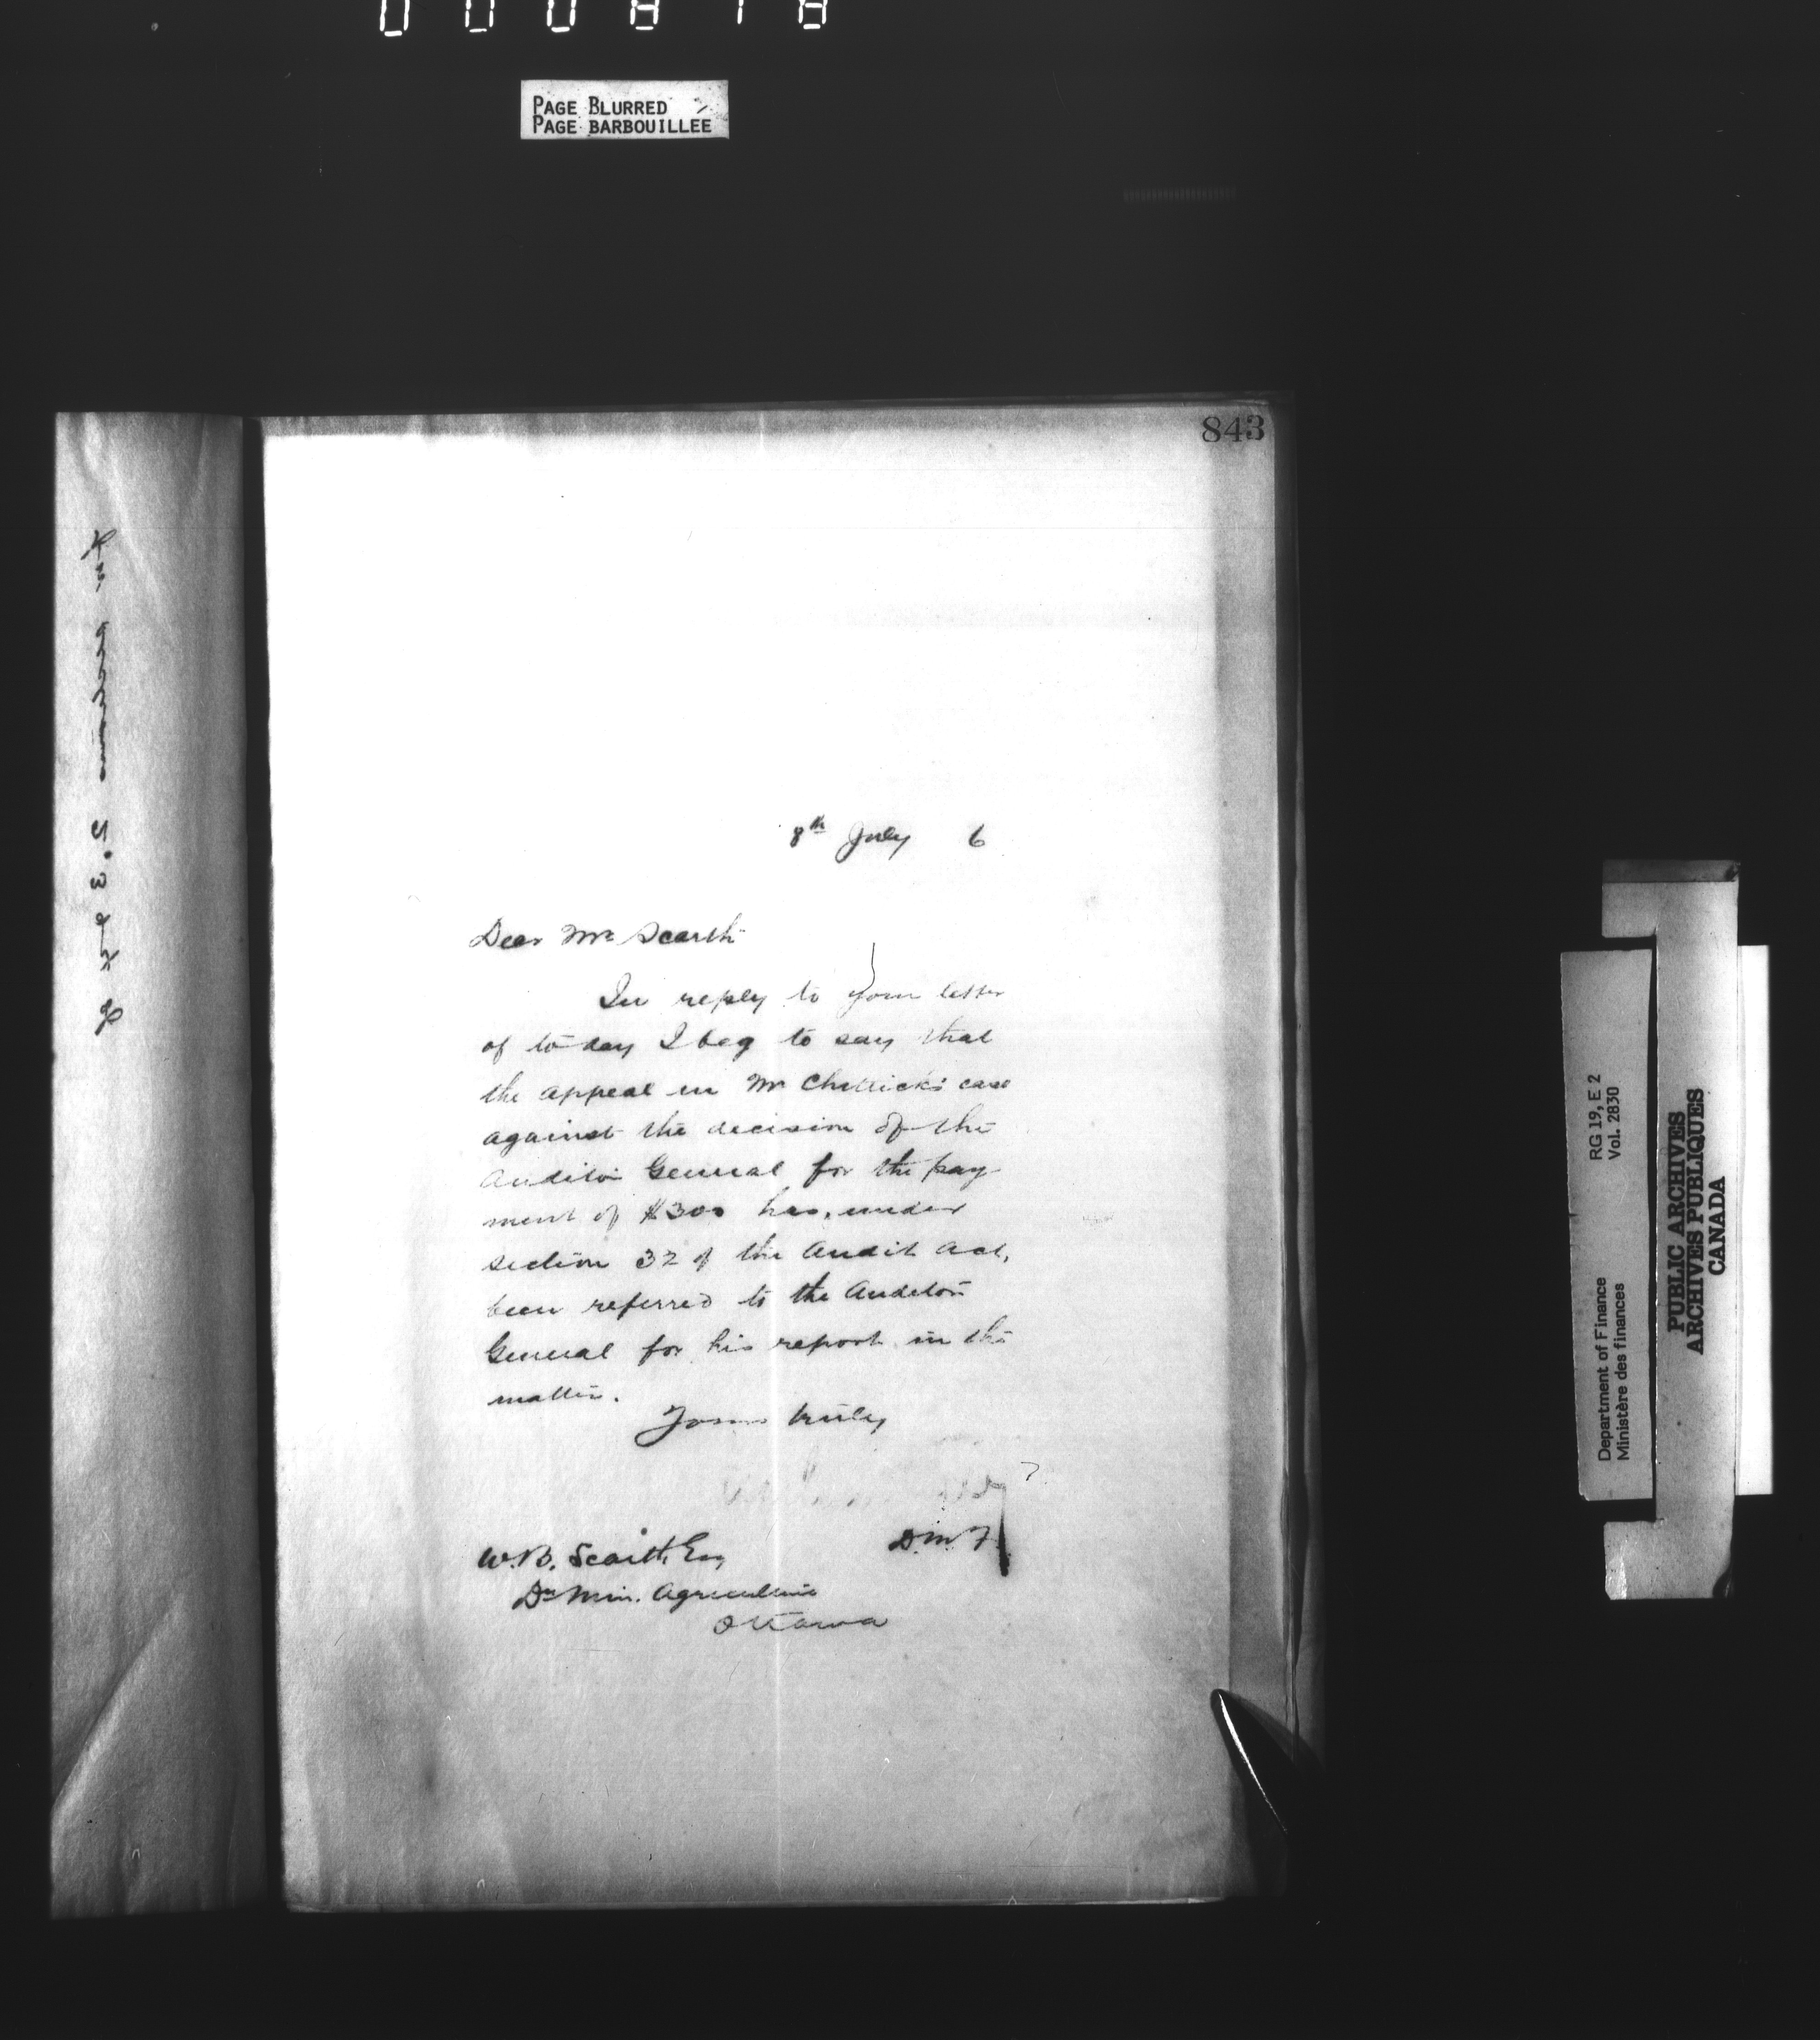 PAGE BLURRED
PAGE BARBOUILLEE
843
8th July 6
Dear Mr Scarth
In reply to your letter
of to-day I beg to say that
the appeal in Mr Chittick's case
against the decision of the
Auditor General for the pay
ment of $300 has, under
section 32 of the Audit Act,
been referred to the Auditor
General for his report in the
matter.
Yours truly
D.M.F.
W.B. Scarth Esq
Dy Min. Agriculture
Ottawa
RG 19, E 2
Vol. 2830
Department of Finance
Ministère des finances
PUBLIC ARCHIVES
ARCHIVES PUBLIQUES
CANADA